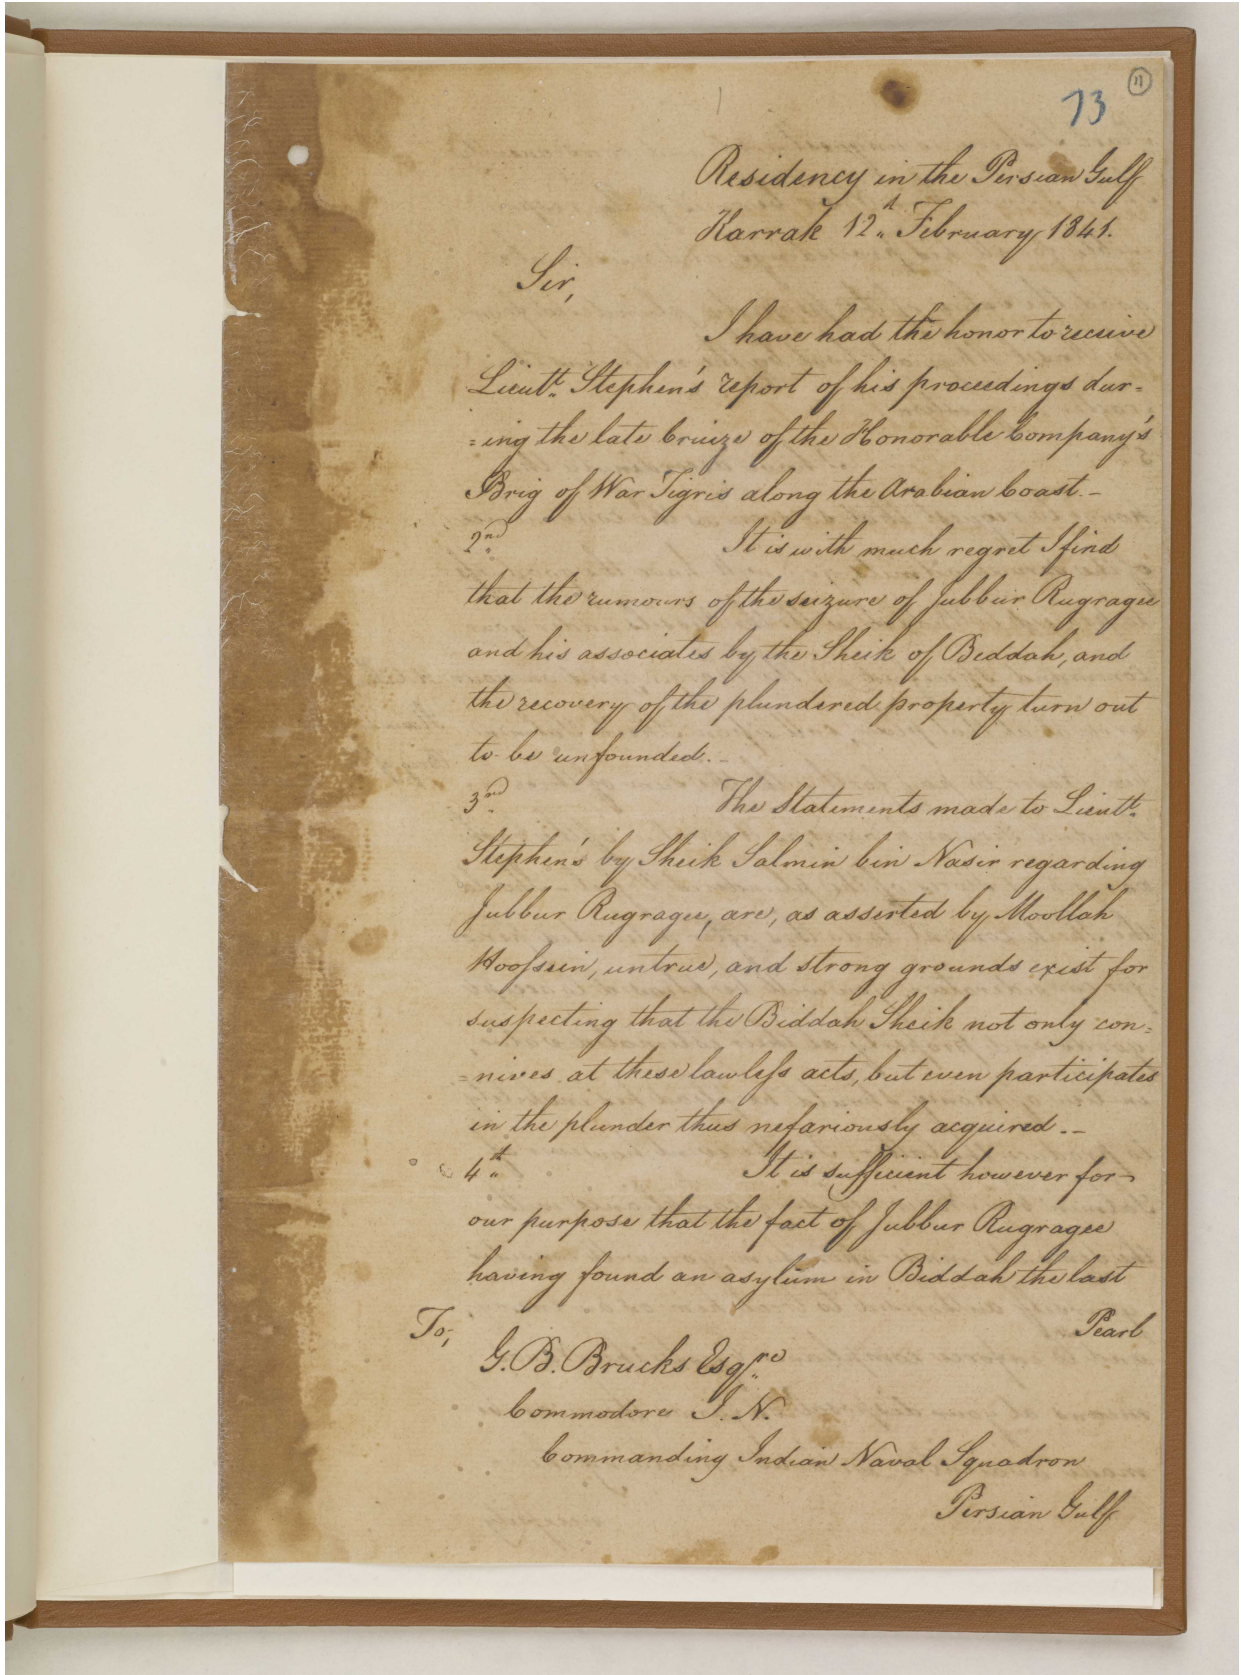 11
73
Residency in the Persian Gulf
Karrak 12th February 1841.
Sir,
I have had the honor to receive
Lieutt. Stephen's report of his proceedings dur=
=ing the late Cruize of the Honorable Company's
Brig of War Tigris along the Arabian Coast. -
2nd It is with much regret I find
that the rumours of the seizure of Jubbur Rugragee
and his associates by the Sheik of Beddah, and
the recovery of the plundered property turn out
to be unfounded. -
3rd The Statements made to Lieutt.
Stephen's by Sheik Salmin bin Nasir regarding
Jubbur Rugragee, are, as asserted by Moollah
Hoossein, untrue, and strong grounds exist for
suspecting that the Biddah Sheik not only con=
=nives at these lawless acts, but even participates
in the plunder thus nefariously acquired. -
4th It is sufficient however for
our purpose that the fact of Jubbur Rugragee
having found an asylum in Biddah the last
Pearl
To,
G. B. Brucks Esqre.
Commodore I. N.
Commanding Indian Naval Squadron
Persian Gulf